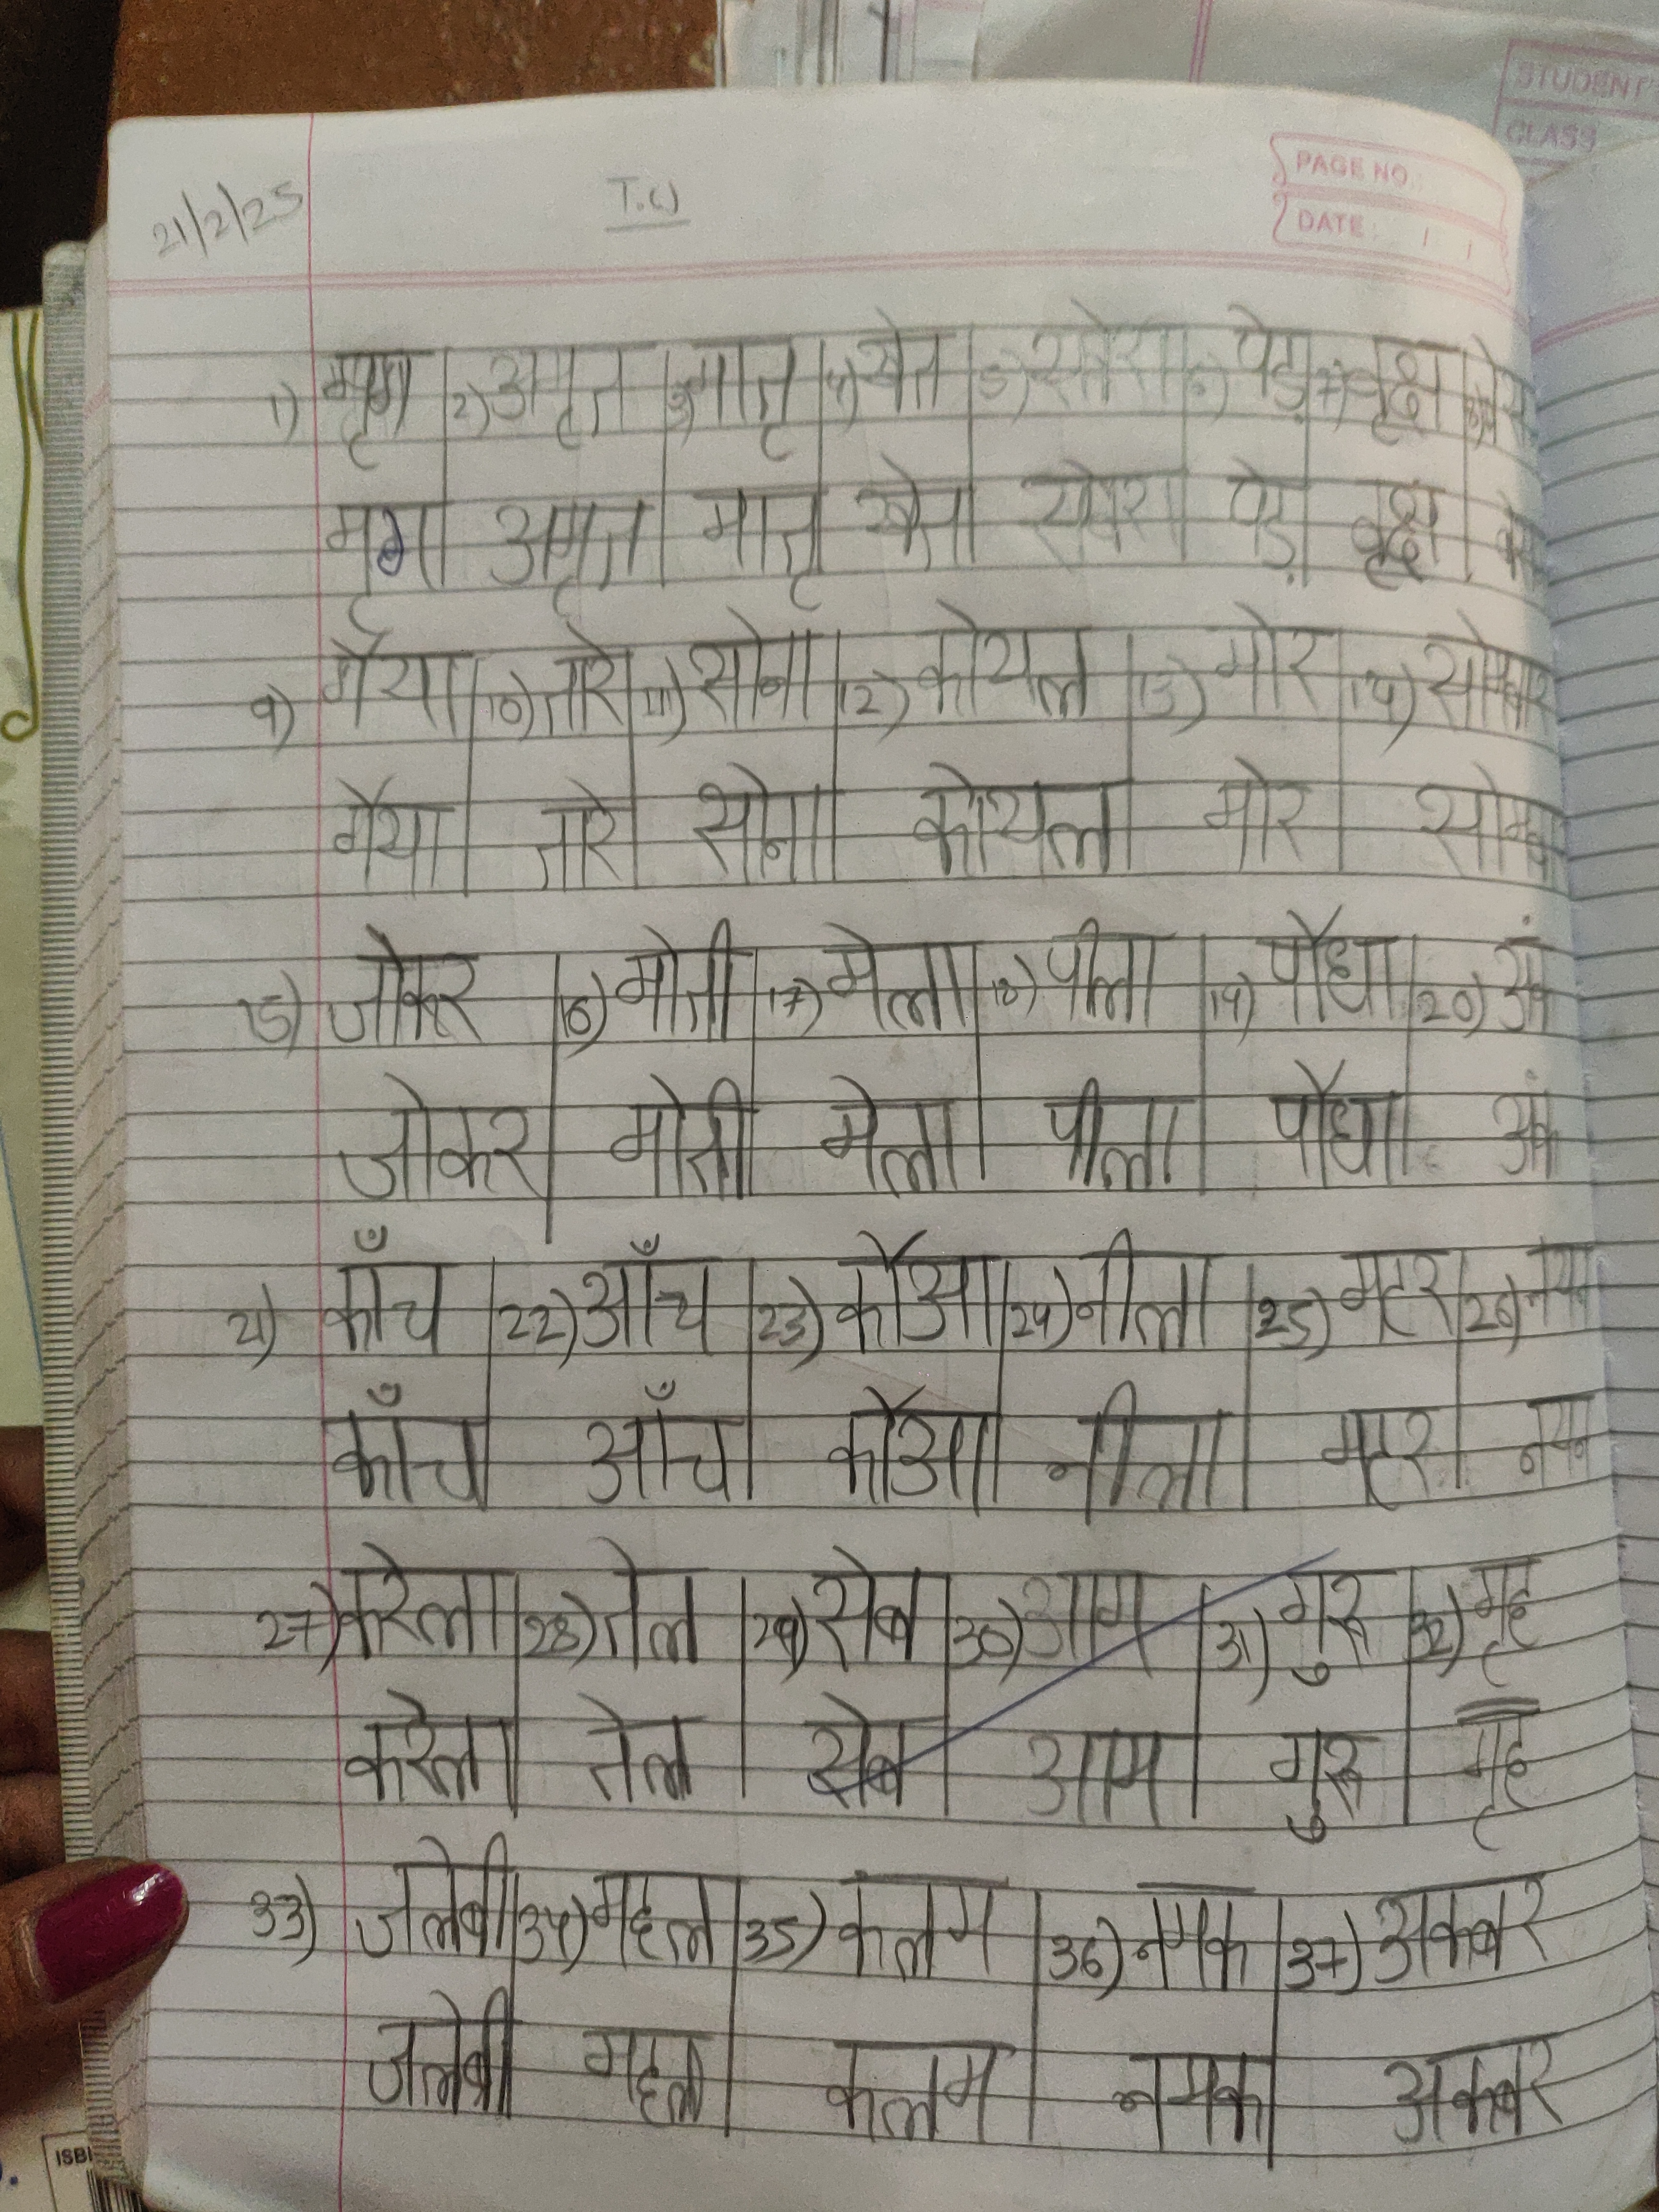 STUDENT
CLASS
PAGE NO.:
DATE: / /
21/2/25
T.W
1) मृग 2) अमृत 3) मातृ 4) खेत 5) सवेरा 6) पेड़ 7) वृक्ष 8)
मृग अमृत मातृ खेत सवेरा पेड़ वृक्ष
9) गैया 10) तारे 11) सोना 12) कोयल 13) मोर 14) सोमवार
गैया तारे सोना कोयल मोर
15) जोकर 16) मोती 17) मेला 18) पीला 19) पौधा 20)
जोकर मोती मेला पीला पौधा
21) काँच 22) आँच 23) कौआ 24) नीला 25) मटर 26) नयन
काँच आँच कौआ नीला मटर नयन
27) करेला 28) तेल 29) सेब 30) आम 31) गुरु 32) गृह
करेला तेल सेब आम गुरु गृह
33) जलेबी 34) महल 35) कलम 36) नमक 37) अकबर
जलेबी महल कलम नमक अकबर
ISB